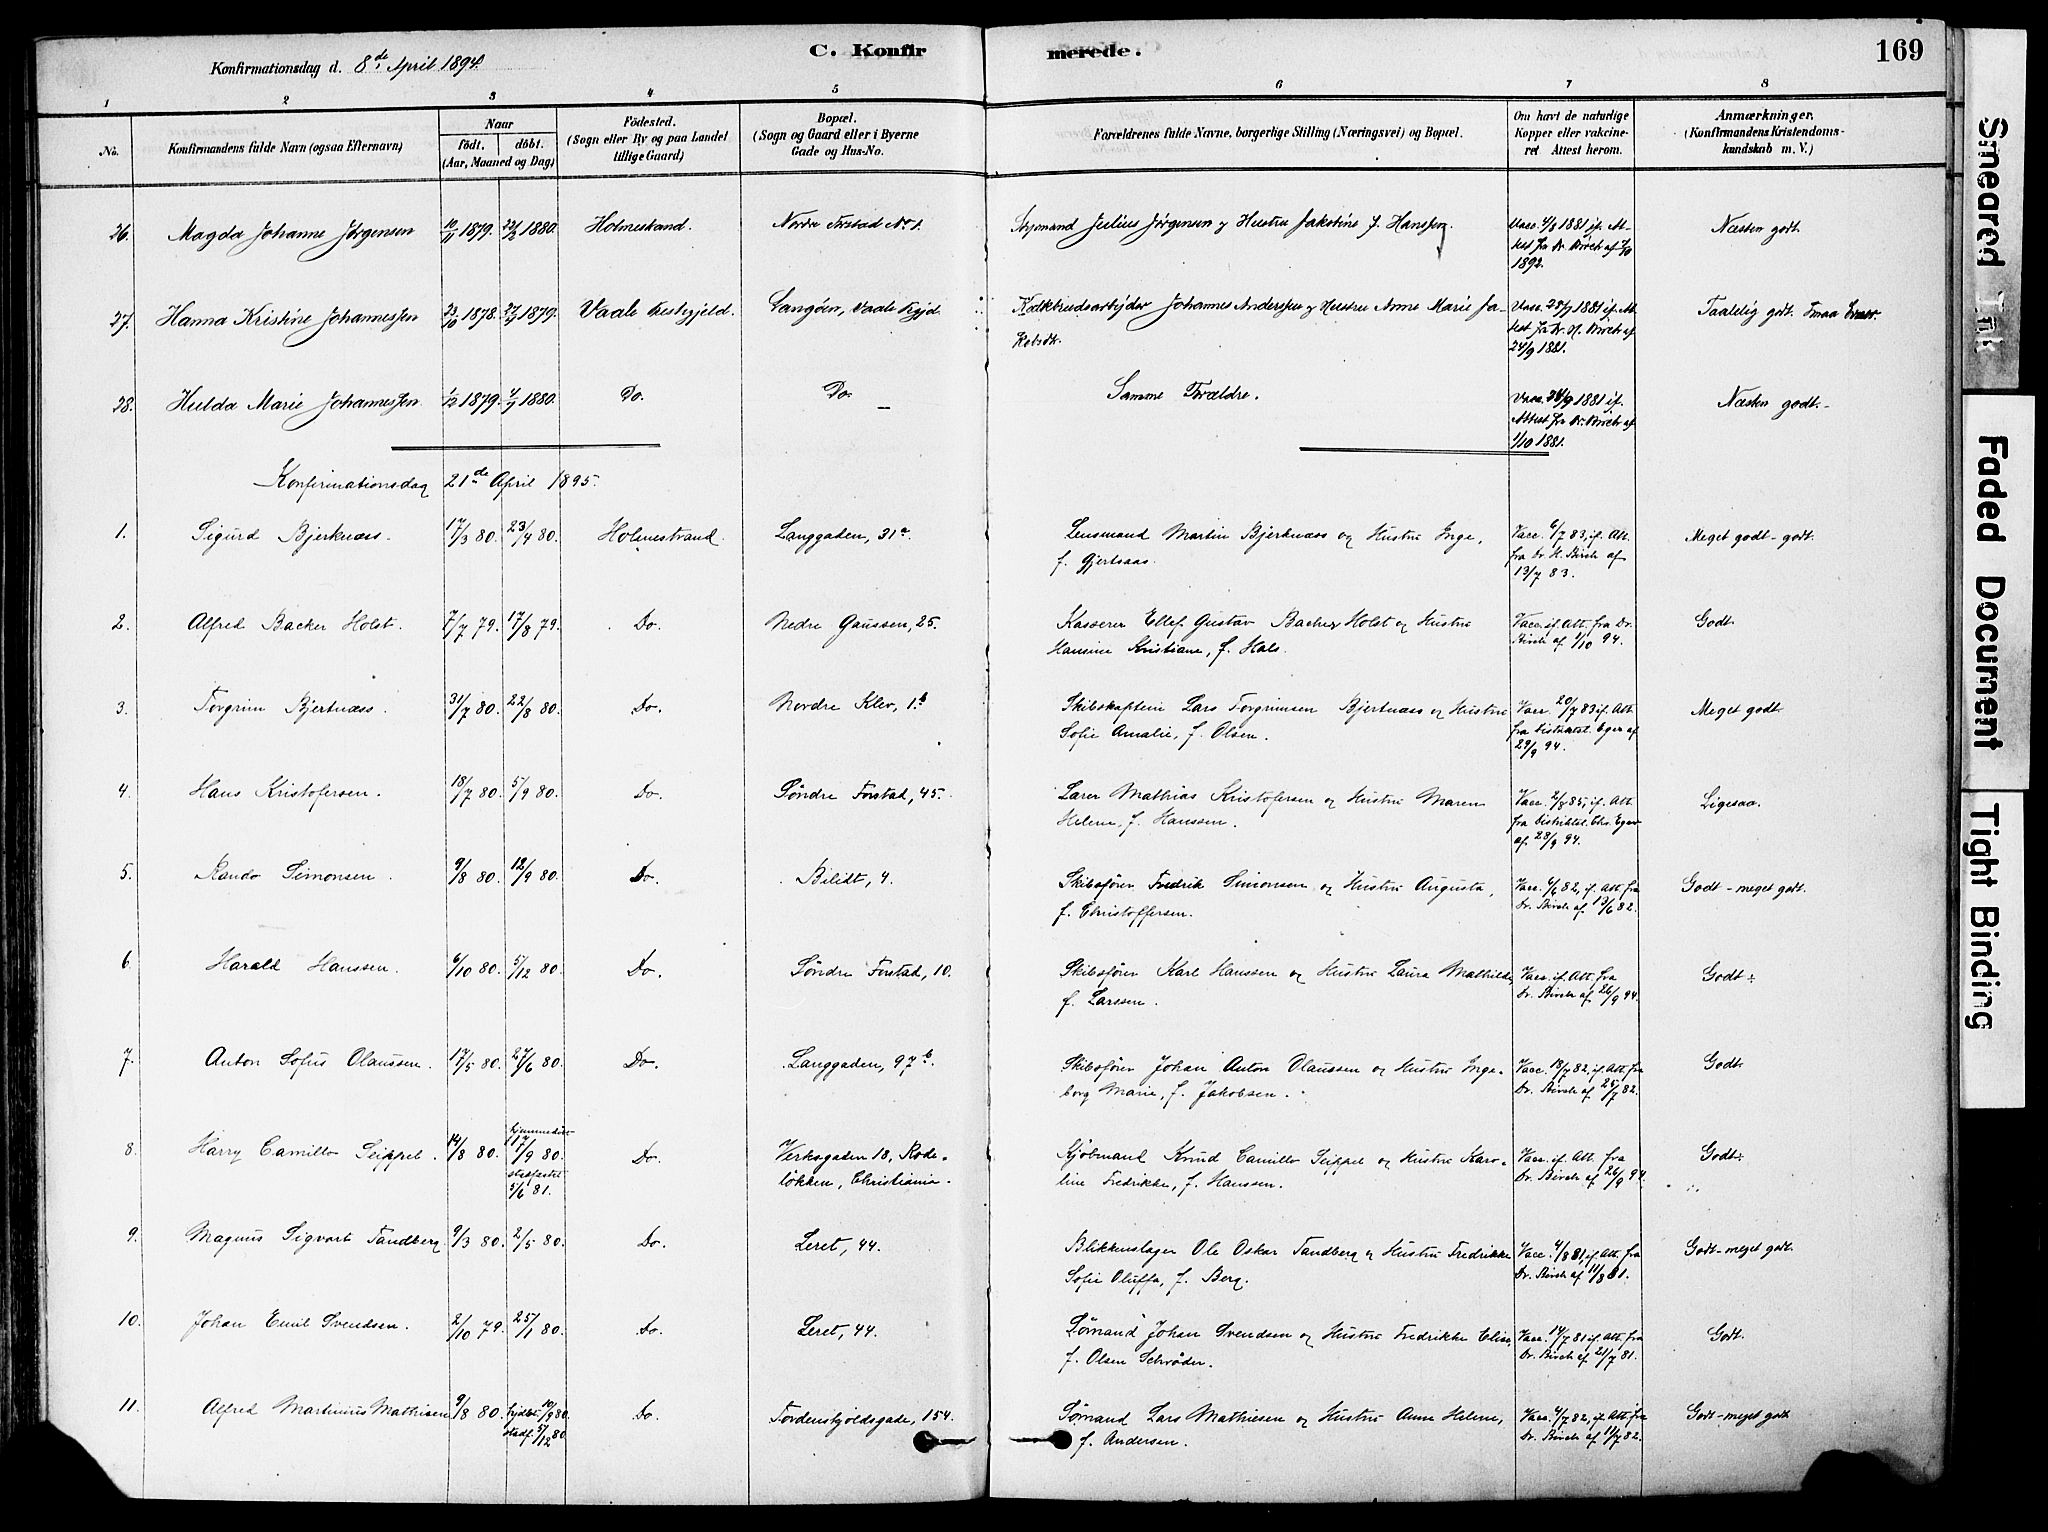 C. Konfirmerede.
169
Konfirmationsdag d. 8de April 1894.
1 2 3 4 5 6 7 8
No.
Konfirmandens fulde Navn (ogsaa Efternavn)
Naar
födt. döbt.
(Aar, Maaned og Dag)
Födested.
(Sogn eller By og paa Landet
tillige Gaard)
Bopæl.
(Sogn og Gaard eller i Byerne
Gade og Hus-No.
Forældrenes fulde Navne, borgerlige Stilling (Næringsvei) og Bopæl.
Om havt de naturlige
Kopper eller vakcine-
ret Attest herom.
Anmærkninger.
(Konfirmandens Kristendoms-
kundskab m. V.)
26. Magda Johanne Jørgensen 10/11 1879. 22/2 1880. Holmestrand. Nordre Forstad No 1. Styrmand Julius Jørgensen og Hustru Jakobine f. Hanssen. Vacc. 4/8 1881 if. At-
test fra Dr. Birch af
1892. Næsten godt.
27. Hanna Kristine Johannessen 23/10 1878. 1879. Vaale Prestegjeld. Langöen, Vaale Pgjd. Kalkbrudsarbeider Johannes Anderssen og Hustru Anne Marie Ja-
kobsdt. Vacc. 28/9 1881 if. At-
test fra Dr. H. Birch af
24/9 1881. Taalelig godt. Smaa Evner.
28. Hulda Marie Johannessen 1/12 1879. 4/7 1880. Do. Do. Samme Forældre. Vacc. 24/9 1881 if.
Attest fra Dr. Birch af
1/10 1881. Næsten godt.
Konfirmationsdag 21de April 1895.
1. Sigurd Bjerknæss 17/3 80. 23/4 80. Holmestrand. Langgaden, 31a. Lensmand Martin Bjerknæss og Hustru Inge,
f. Gjertsaas. Vacc. 6/7 83, if. Att.
fra Dr. H. Birch af
13/7 83. Meget godt - godt.
2. Alfred Backer Holst. 7/7 79. 17/8 79. Do. Nedre Gaussen, 25. Kasserer Ellef Gustav Backer Holst og Hustru
Hansine Kristiane, f. Hals. Vacc. if. Att. fra Dr.
Birch af 1/10 94. Godt.
3. Torgrim Bjertnæss. 31/7 80. 22/8 80. Do. Nordre Klev, 1b Skibskaptein Lars Torgrimsen Bjertnæss og Hustru
Sofie Amalie, f. Olsen. Vacc. 20/7 83 if. Att.
fra Distriktsl. Eger af
29/9 94. Meget godt.
4. Hans Kristofersen. 18/7 80. 5/9 80. Do. Söndre Forstad, 45. Lærer Mathias Kristofersen og Hustru Maren
Helene, f. Hanssen. Vacc. 2/8 85, if. Att.
fra Distriktsl. Chr. Eger
af 28/9 94. Ligesaa.
5. Rando Simonsen. 9/8 80. 12/9 80. Do. Bilidt, 4. Skibsfören Fredrik Simonsen og Hustru Augusta,
f. Christoffersen. Vacc. 6/6 82, if. Att. fra
Dr. Birch af 13/6 82. Godt - meget godt.
6. Harald Hanssen. 6/10 80. 5/12 80. Do. Söndre Forstad, 10. Skibsfören Karl Hanssen og Hustru Laura Mathilde
f. Larssen. Vacc. if. Att. fra
Dr. Birch af 26/9 94. Godt.
7. Anton Sofus Olaussen. 17/5 80. 27/6 80. Do. Langgaden, 97b. Skibsfören Johan Anton Olaussen og Hustru Inge-
borg Marie, f. Jakobsen. Vacc. 18/7 82, if. Att. fra
Dr. Birch af 25/7 82. Godt.
8. Harry Camillo Seippel. 14/8 80. hjemmedöbt
17/9 80.
stadfæstet
5/6 81. Do. Verksgaden 18, Rode-
lökken, Christiania. Kjöbmand Knud Camillo Seippel og Hustru Karo-
line Fredrikke, f. Hanssen. Vacc. if. Att. fra
Dr. Birch af 26/9 94. Godt.
9. Magnus Sigvart Tandberg. 9/3 80. 2/5 80. Do. Leret, 44. Blikkenslager Ole Oskar Tandberg og Hustru Fredrikke
Sofie Oluffa, f. Berg. Vacc. 4/8 81, if. Att. fra
Dr. Birch af 11/8 81. Godt - meget godt.
10. Johan Emil Svendsen. 2/10 79. 25/1 80. Do. Leret, 44. Sömand Johan Svendsen og Hustru Fredrikke Elise,
f. Olsen Schröder. Vacc. 14/7 81 if. Att. fra
Dr. Birch af 21/7 81. Godt.
11. Alfred Martinius Mathisen 9/8 80. hjdbt. 10/9 80.
stadf. 5/12 80 Do. Tordenskjoldsgade, 154. Sömand Lars Mathiesen og Hustru Anne Helene,
f. Andersen. Vacc. 4/7 82, if. Att. fra
Dr. Birch af 11/7 82. Godt - meget godt
Smeared Ink
Faded Document
Tight Binding